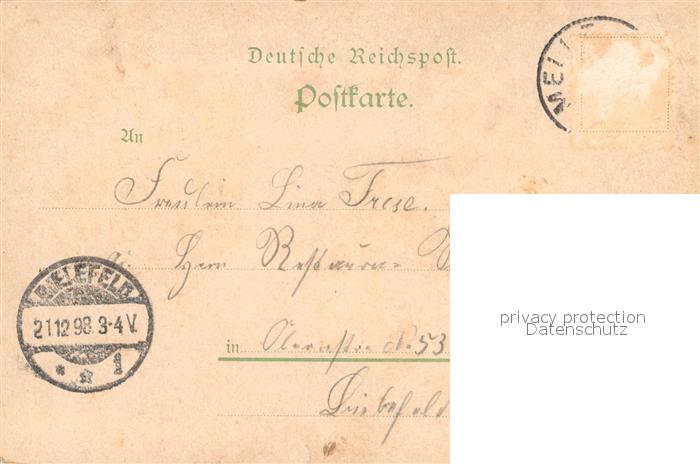 Deutsche Reichspost.
Postkarte.
MELL
An
Fräulein Lina Frese.
Herrn Restaura-
BIELEFELD
21 12 98. 3-4 V.
1
in
No 53
privacy protection
Datenschutz